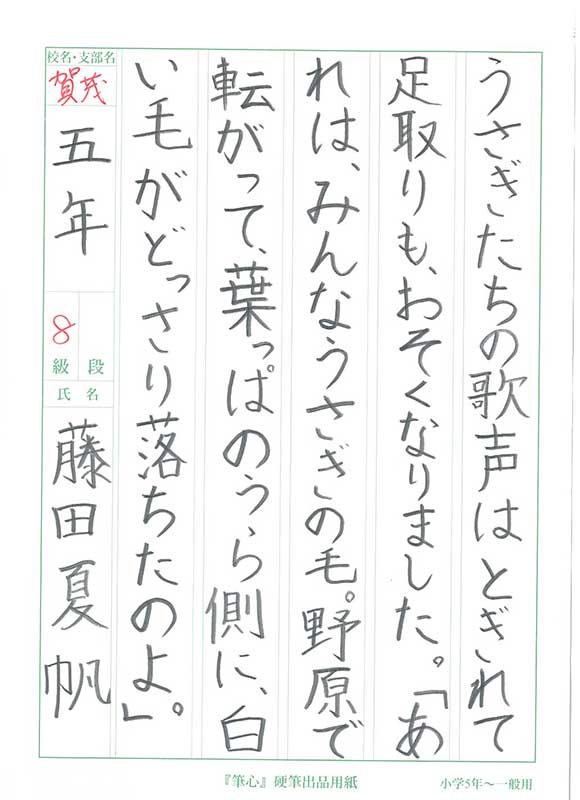 うさぎたちの歌声はとぎれて
足取りも、おそくなりました。「あ
れは、みんなうさぎの毛。野原で
転がって、葉っぱのうら側に、白
い毛がどっさり落ちたのよ。」
校名・支部名
賀茂
五年
8
級 段
氏名
藤田夏帆
『筆心』硬筆出品用紙
小学5年〜一般用